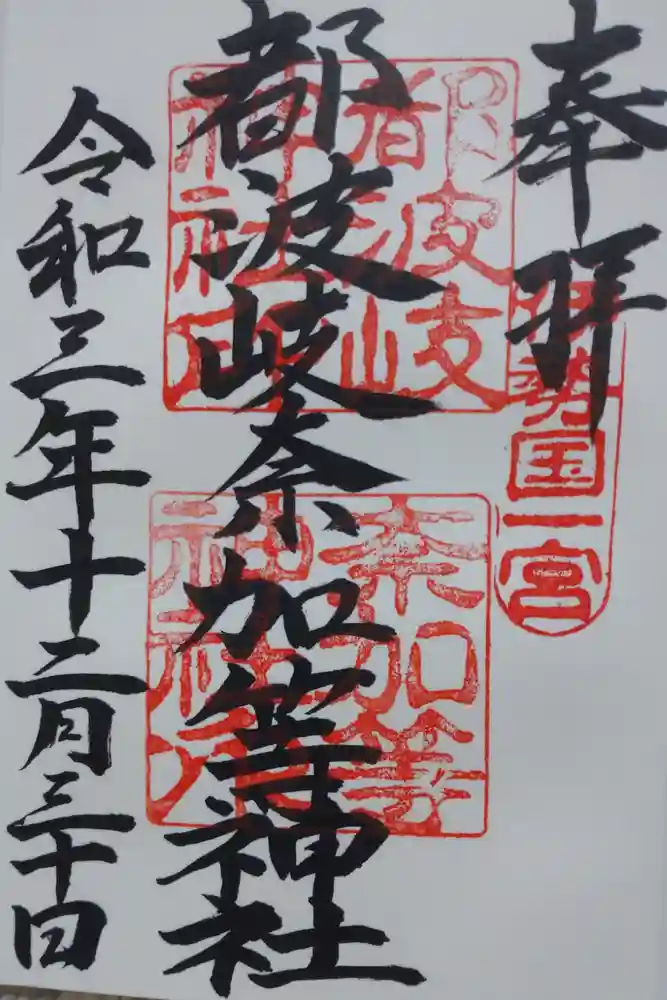 奉拝
伊勢国一宮
都波岐奈加等神社
都波岐
神社印
奈加等
神社印
令和三年十二月三十日